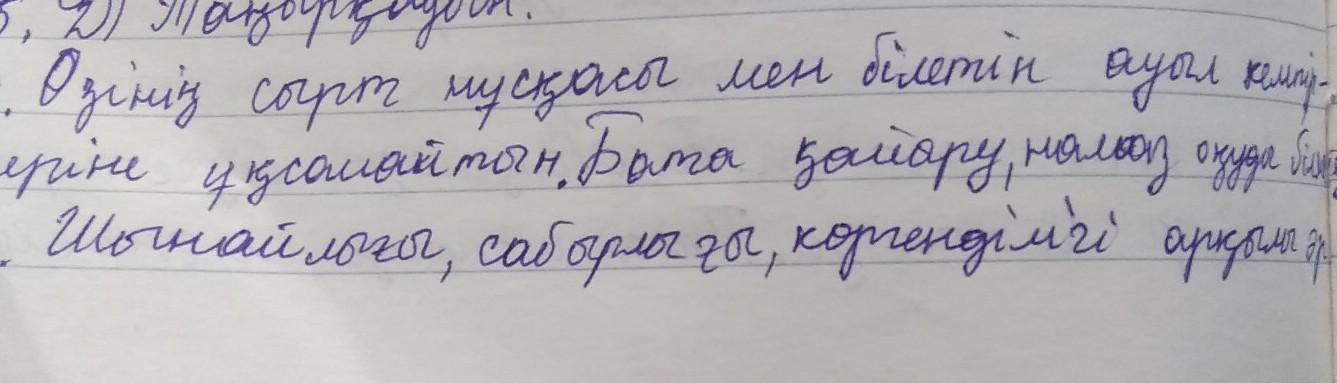 2) Таңырқадым.
Өзінің сырт нұсқасы мен білетін ауыл кемпір-
еріне ұқсамайтын. Бата қайару, намаз оқуда
Шынайлығы, сабырлығы, көргенділігі арқылы әр